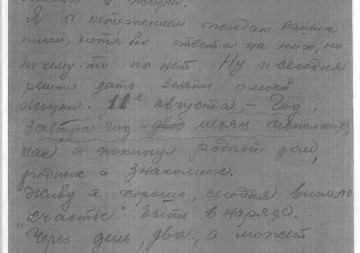 Я с нетерпением ожидаю ваших
писем, хотя бы ответа на них, но
почему-то их нет. Ну и сегодня
решил дать знать о моей
жизни. 11е августа – год,
завтра год месяц исполнится,
как я покинул родный дом,
родных и знакомых.
Живу я хорошо, сегодня выпало
"счастье" быть в наряде.
Через день, два, а может